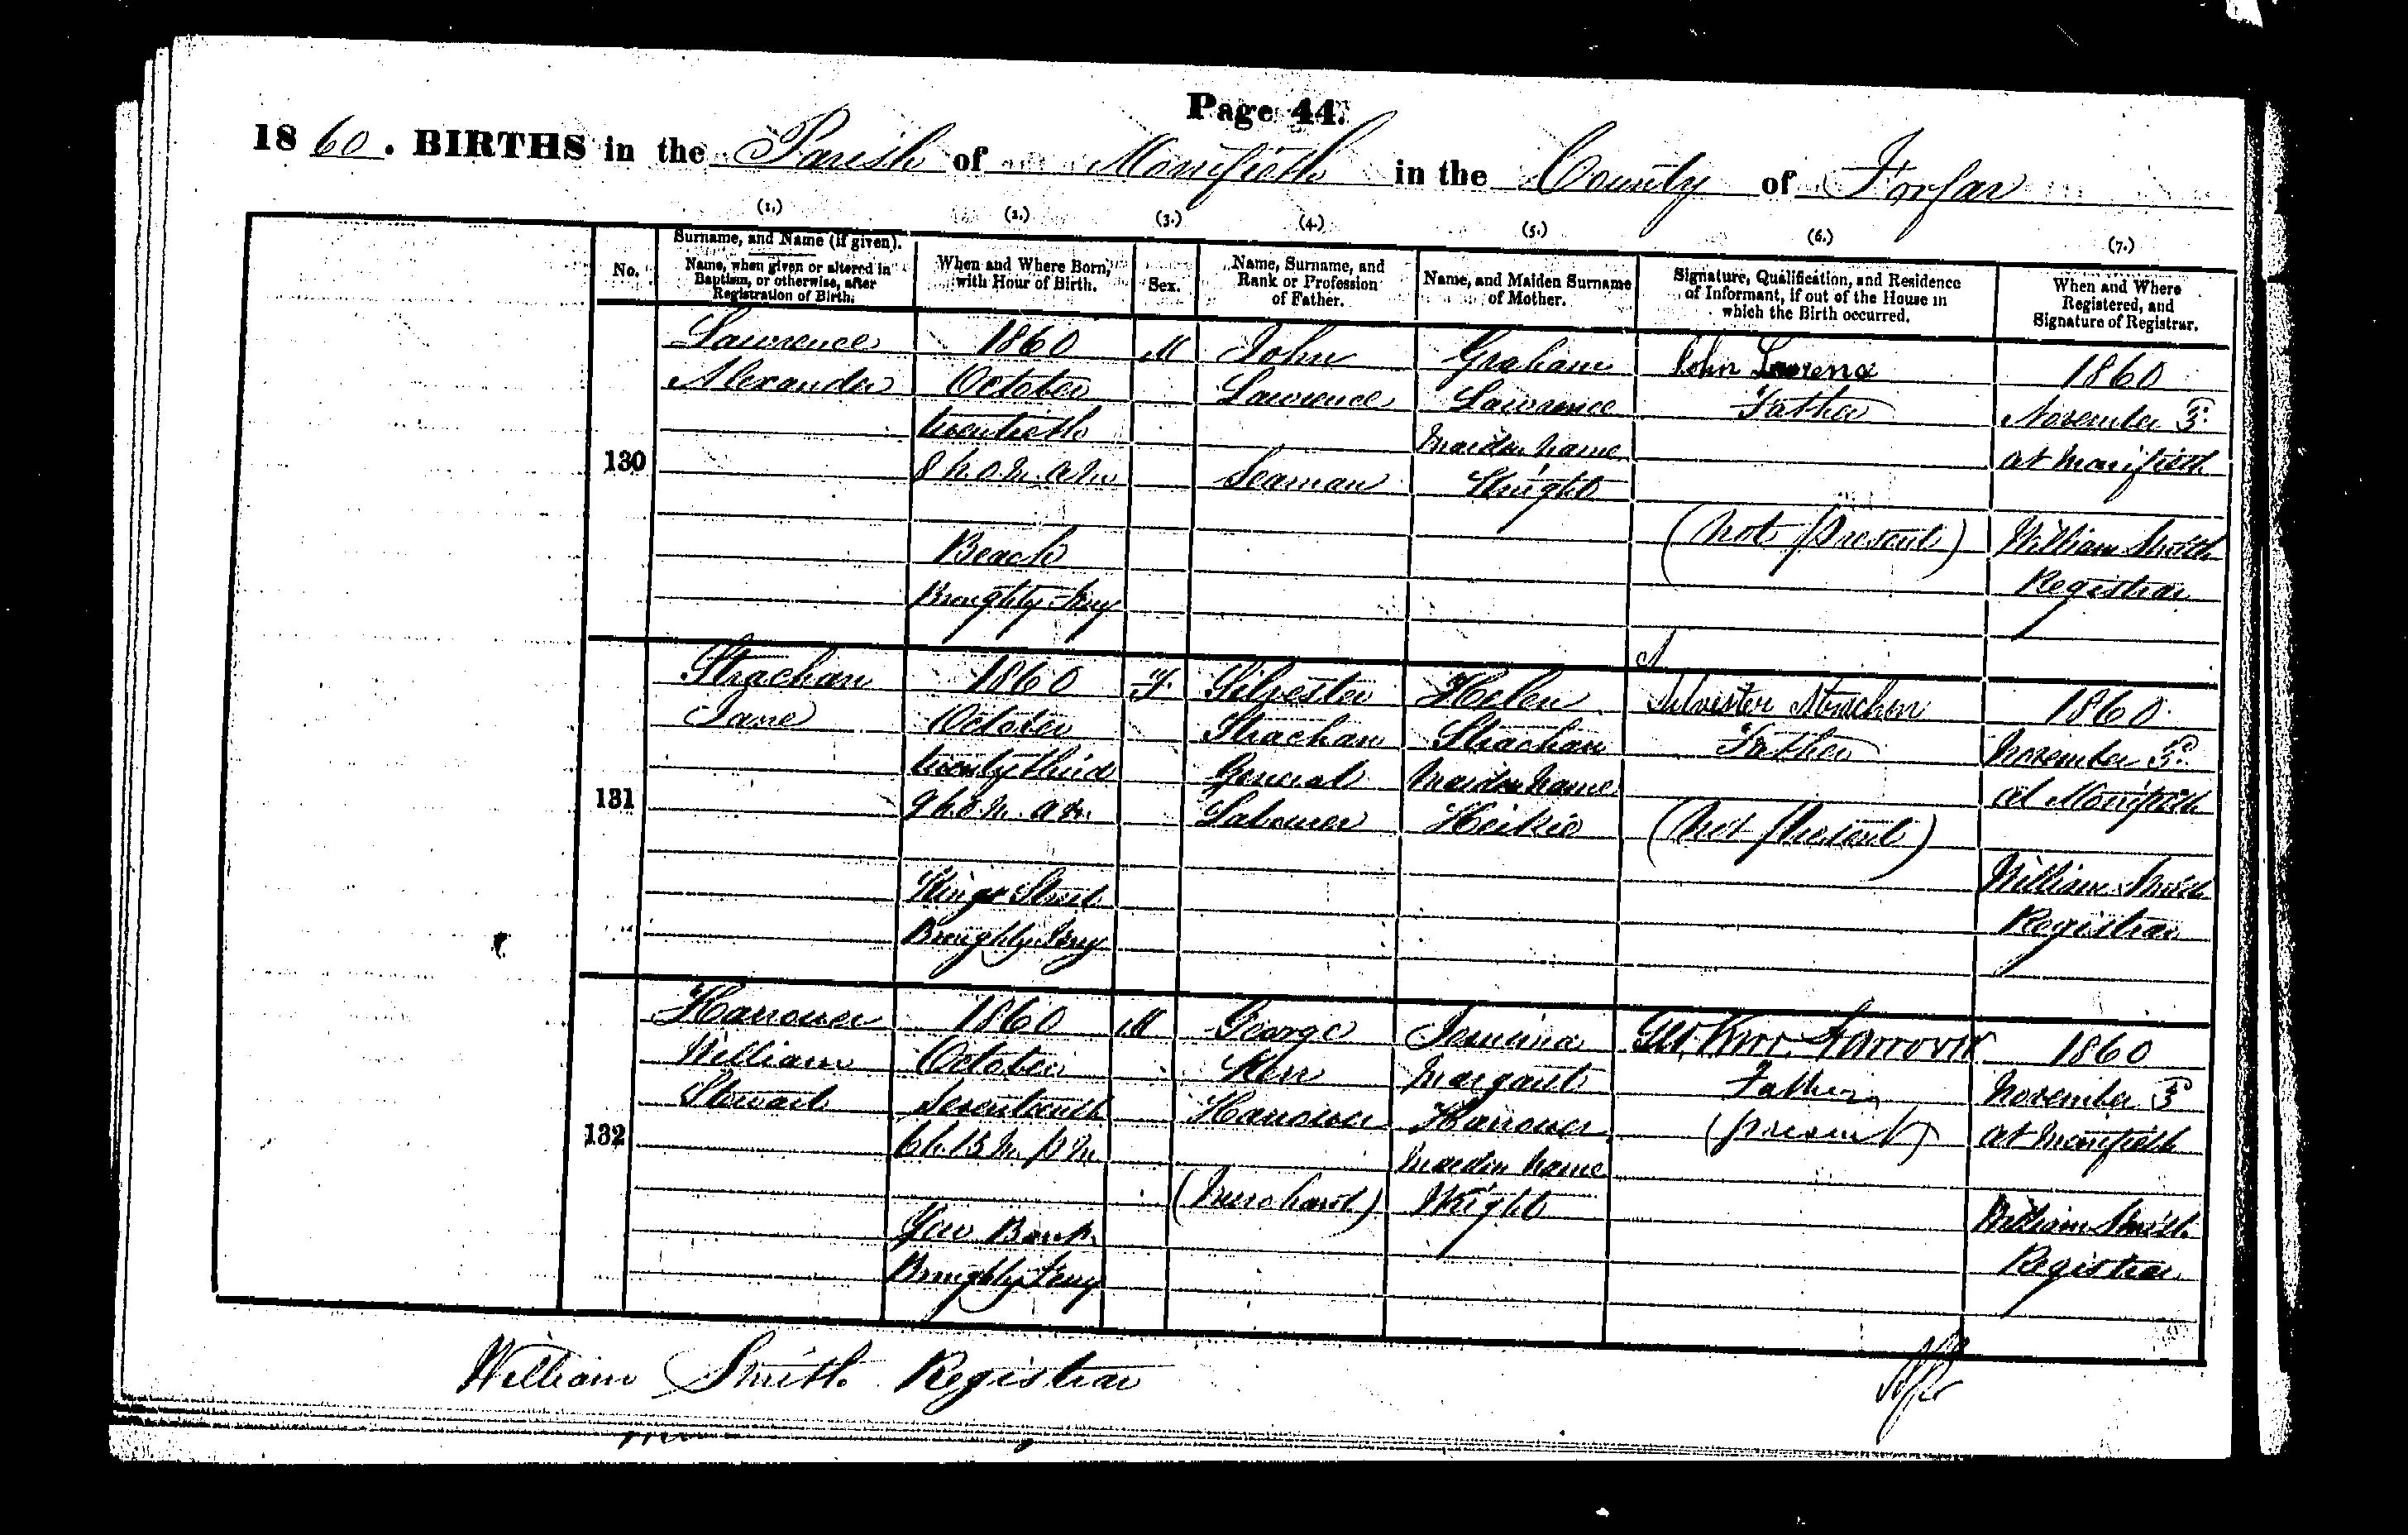 Page 44.
1860. BIRTHS in the Parish of Monifieth in the County of Forfar
(1.) (2.) (3.) (4.) (5.) (6.) (7.)
No.
Surname, and Name (if given).
Name, when given or altered in
Baptism, or otherwise, after
Registration of Birth.
When and Where Born,
with Hour of Birth.
Sex.
Name, Surname, and
Rank or Profession
of Father.
Name, and Maiden Surname
of Mother.
Signature, Qualification, and Residence
of Informant, if out of the House in
which the Birth occurred.
When and Where
Registered, and
Signature of Registrar.
130
Lawrence
Alexander
1860
October
twentieth
8 h. 0 m. a.m.
Beach
Broughty Ferry
M
John
Lawrence
Seaman
Graham
Lawrence
Maiden name
Knight
John Lawrence
Father
(Not present)
1860
November 3
at Monifieth
William Smith
Registrar
131
Strachan
Jane
1860
October
twenty third
9 h. 0 m. a.m.
Kings Street
Broughty Ferry
F.
Silvester
Strachan
General
Labourer
Helen
Strachan
Maiden name
Heikie
Silvester Strachan
Father
(Not present)
1860
November 3
at Monifieth
William Smith
Registrar
132
Harrower
William
Stewart
1860
October
Seventeenth
6 h. 15 m. p.m.
Bank
Broughty Ferry
M
George
Kerr
Harrower
(Merchant)
Jemima
Margaret
Harrower
Maiden name
Wright
Geo. Kerr. Harrower
Father
(present)
1860
November 3
at Monifieth
William Smith.
Registrar
William Smith. Registrar